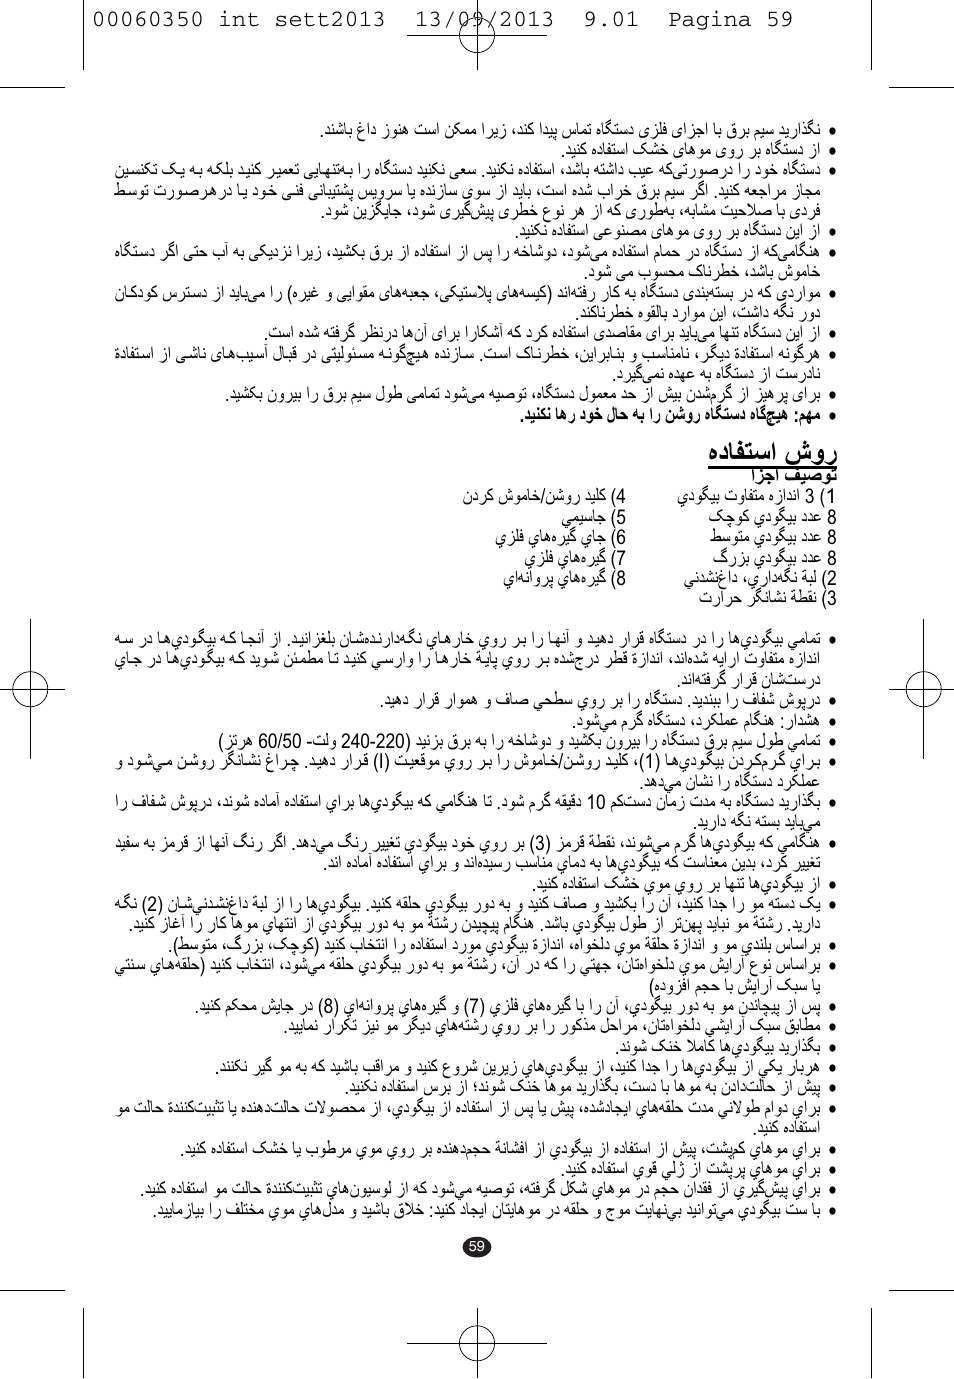 00060350 int sett2013 13/09/2013 9.01 Pagina 59
● نگذارید سیم برق با اجزای فلزی دستگاه تماس پیدا کند، زیرا ممکن است هنوز داغ باشند.
● از دستگاه بر روی موهای خشک استفاده کنید.
● دستگاه خود را درصورتی‌که عیب داشته باشد، استفاده نکنید. سعی نکنید دستگاه را به‌تنهایی تعمیر کنید بلکه به یک تکنسین
مجاز مراجعه کنید. اگر سیم برق خراب شده است، باید از سوی سازنده یا سرویس پشتیبانی فنی خود یا درهرصورت توسط
فردی با صلاحیت مشابه، به‌طوری که از هر نوع خطری پیش‌گیری شود، جایگزین شود.
● از این دستگاه بر روی موهای مصنوعی استفاده نکنید.
● هنگامی‌که از دستگاه در حمام استفاده می‌شود، دوشاخه را پس از استفاده از برق بکشید، زیرا نزدیکی به آب حتی اگر دستگاه
خاموش باشد، خطرناک محسوب می شود.
● مواردی که در بسته‌بندی دستگاه به کار رفته‌اند (کیسه‌های پلاستیکی، جعبه‌های مقوایی و غیره) را می‌باید از دسترس کودکان
دور نگه داشت، این موارد بالقوه خطرناکند.
● از این دستگاه تنها می‌باید برای مقاصدی استفاده کرد که آشکارا برای آن‌ها درنظر گرفته شده است.
● هرگونه استفادة دیگر، نامناسب و بنابراین، خطرناک است. سازنده هیچ‌گونه مسئولیتی در قبال آسیب‌های ناشی از استفادة
نادرست از دستگاه به عهده نمی‌گیرد.
● برای پرهیز از گرم‌شدن بیش از حد معمول دستگاه، توصیه می‌شود تمامی طول سیم برق را بیرون بکشید.
● مهم: هیچ‌گاه دستگاه روشن را به حال خود رها نکنید.
روش استفاده
توصیف اجزا
1) 3 اندازه متفاوت بيگودي
8 عدد بيگودي کوچک
8 عدد بيگودي متوسط
8 عدد بيگودي بزرگ
2) لبة نگه‌داري، داغ‌نشدني
3) نقطة نشانگر حرارت
4) کليد روشن/خاموش کردن
5) جاسيمي
6) جاي گيره‌هاي فلزي
7) گيره‌هاي فلزي
8) گيره‌هاي پروانه‌اي
● تمامي بيگودي‌ها را در دستگاه قرار دهيد و آنها را بر روي خارهاي نگه‌دارنده‌شان بلغزانيد. از آنجا که بيگودي‌ها در سه
اندازه متفاوت ارايه شده‌اند، اندازة قطر درج‌شده بر روي پاية خارها را وارسي کنيد تا مطمئن شويد که بيگودي‌ها در جاي
درست‌شان قرار گرفته‌اند.
● درپوش شفاف را ببنديد. دستگاه را بر روي سطحي صاف و هموار قرار دهيد.
● هشدار: هنگام عملکرد، دستگاه گرم مي‌شود.
● تمامي طول سيم برق دستگاه را بيرون بکشيد و دوشاخه را به برق بزنيد (220-240 ولت- 60/50 هرتز)
● براي گرم‌کردن بيگودي‌ها (1)، کليد روشن/خاموش را بر روي موقعيت (I) قرار دهيد. چراغ نشانگر روشن مي‌شود و
عملکرد دستگاه را نشان مي‌دهد.
● بگذاريد دستگاه به مدت زمان دست‌کم 10 دقيقه گرم شود. تا هنگامي که بيگودي‌ها براي استفاده آماده شوند، درپوش شفاف را
مي‌بايد بسته نگه داريد.
● هنگامي که بيگودي‌ها گرم مي‌شوند، نقطة قرمز (3) بر روي خود بيگودي تغيير رنگ مي‌دهد. اگر رنگ آنها از قرمز به سفيد
تغيير کرد، بدين معناست که بيگودي‌ها به دماي مناسب رسيده‌اند و براي استفاده آماده اند.
● از بيگودي‌ها تنها بر روي موي خشک استفاده کنيد.
● يک دسته مو را جدا کنيد، آن را بکشيد و صاف کنيد و به دور بيگودي حلقه کنيد. بيگودي‌ها را از لبة داغ‌نشدني‌شان (2) نگه
داريد. رشتة مو نبايد پهن‌تر از طول بيگودي باشد. هنگام پيچيدن رشتة مو به دور بيگودي از انتهاي موها کار را آغاز کنيد.
● براساس بلندي مو و اندازة حلقة موي دلخواه، اندازة بيگودي مورد استفاده را انتخاب کنيد (کوچک، بزرگ، متوسط).
● براساس نوع آرايش موي دلخواه‌تان، جهتي را که در آن، رشتة مو به دور بيگودي حلقه مي‌شود، انتخاب کنيد (حلقه‌هاي سنتي
يا سبک آرايش با حجم افزوده)
● پس از پيچاندن مو به دور بيگودي، آن را با گيره‌هاي فلزي (7) و گيره‌هاي پروانه‌اي (8) در جايش محکم کنيد.
● مطابق سبک آرايشي دلخواه‌تان، مراحل مذکور را بر روي رشته‌هاي ديگر مو نيز تکرار نماييد.
● بگذاريد بيگودي‌ها کاملا خنک شوند.
● هربار يکي از بيگودي‌ها را جدا کنيد، از بيگودي‌هاي زيرين شروع کنيد و مراقب باشيد که به مو گير نکنند.
● پيش از حالت‌دادن به موها با دست، بگذاريد موها خنک شوند؛ از برس استفاده نکنيد.
● براي دوام طولاني مدت حلقه‌هاي ايجادشده، پيش يا پس از استفاده از بيگودي، از محصولات حالت‌دهنده يا تثبيت‌کنندة حالت مو
استفاده کنيد.
● براي موهاي کم‌پشت، پيش از استفاده از بيگودي از افشانة حجم‌دهنده بر روي موي مرطوب يا خشک استفاده کنيد.
● براي موهاي پرپشت از ژلي قوي استفاده کنيد.
● براي پيش‌گيري از فقدان حجم در موهاي شکل گرفته، توصيه مي‌شود که از لوسيون‌هاي تثبيت‌کنندة حالت مو استفاده کنيد.
● با ست بيگودي مي‌توانيد بي‌نهايت موج و حلقه در موهايتان ايجاد کنيد: خلاق باشيد و مدل‌هاي موي مختلف را بيازماييد.
59